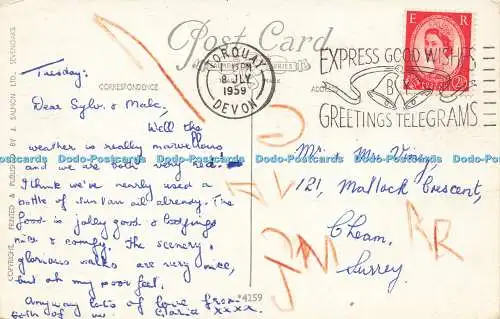 Post Card
TORQUAY
PM
8 JLY
1959
DEVON
EXPRESS GOOD WISHES
BY
GREETINGS TELEGRAMS
E R
CORRESPONDENCE
ADDRESS
COPYRIGHT, PRINTED & PUBLISHED BY J. SALMON LTD., SEVENOAKS
Tuesday:
Dear Sylv. &
Well the
weather is really marvellous
and we are both very red.
I think we've nearly used a
bottle of sun tan oil already. The
food is jolly good & lodgings
nice & comfy. The scenery &
glorious walks are very nice,
but oh my poor feet.
Anyway lots of love from
both of us xxxx
*4259
Mr. Mrs
121, Matlock Crescent,
Cheam,
Surrey.
RR
Dodo-Postcards Dodo-Postcards Dodo-Postcards Dodo-Postcards Dodo-Postcards